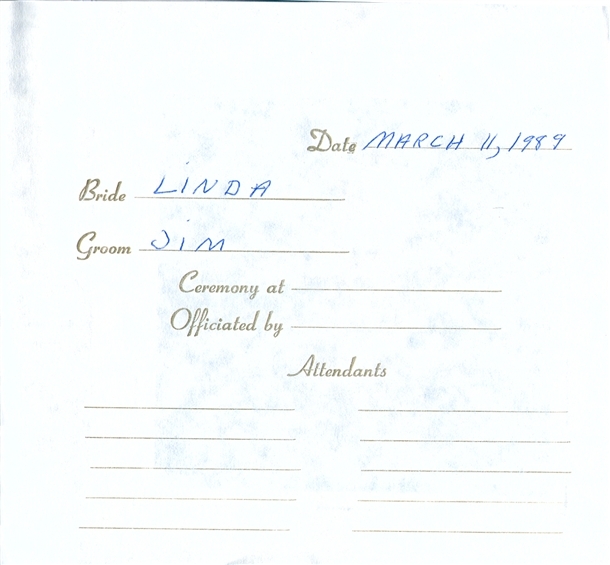 Date MARCH 11, 1989
Bride LINDA
Groom JIM
Ceremony at
Officiated by
Attendants